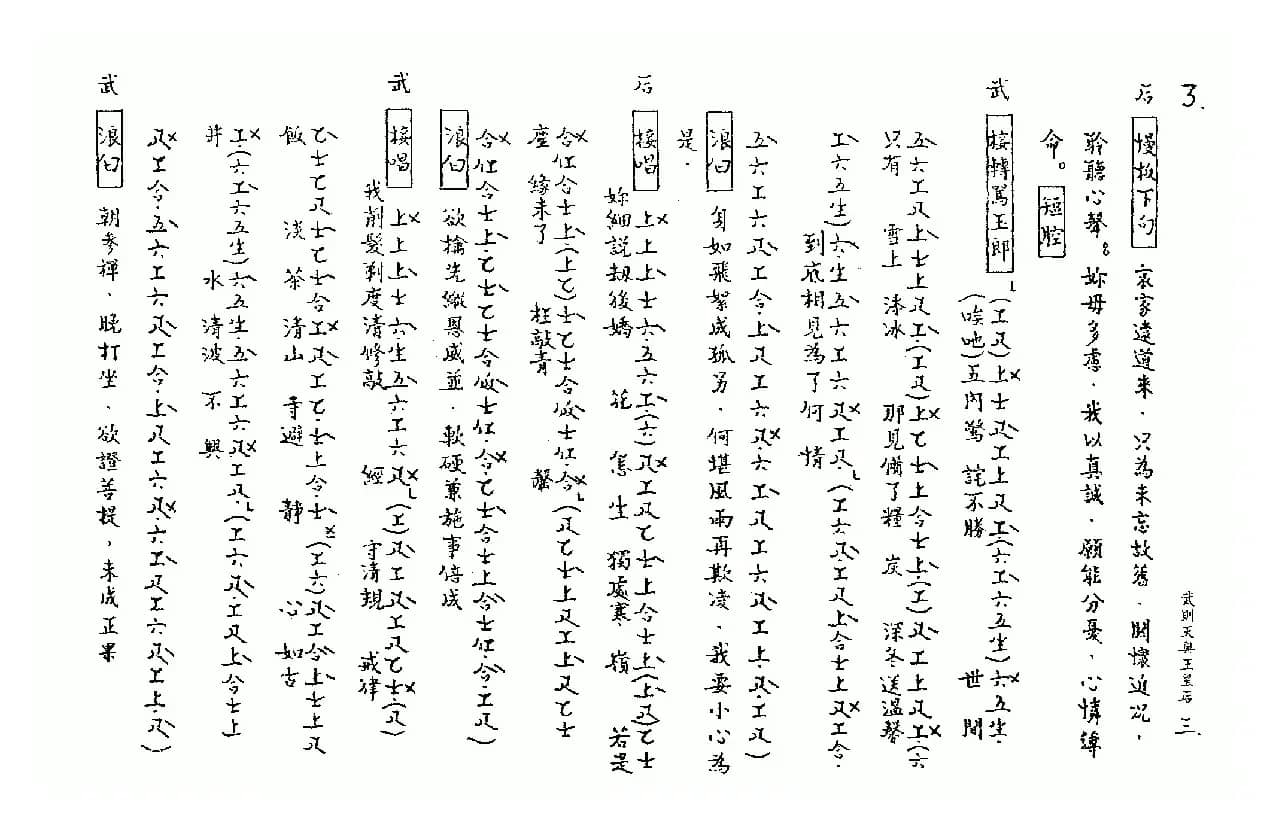 3.
武則天與王皇后 三.
后 慢板下句 哀家遠道來．只為未忘故舊．關懷近況，
聆聽心聲。妳毋多慮．我以真誠．願能分憂、心情繹
命。 短腔
武 接轉罵玉郎 (工尺)上士尺工上尺工(六工六五生)六五生．
(唉吔)五內驚 詫不勝 世 間
五六工尺上士上尺工(工尺)上乙士上合士上．(工)尺工上尺工(六
只有 雪上 添冰 那見備了糧 炭 深冬送溫馨
工六五生)六．生五六工六尺工尺(工六尺．工尺上合士上尺工合．
到底相見為了何 情
五六工六尺工合．上尺工六尺．六工尺工六尺工上．尺．工尺)
浪白 身如飛絮成孤另．何堪風雨再欺凌、我要小心為
是．
后 接唱 上上上士六．五六工(六)尺工尺乙士上合士上(上尺)乙士
妳細說劫後嬌 花 怎 生 獨處寒 嶺 若是
合仕合士上(上乙)士乙士合仮士仕．合(尺乙士上尺工上尺乙士
座 緣未了 枉敲青 磬
合仕合士上．乙士乙士合仮士仕．合．乙士合士上合士仕合．工尺)
浪白 欲擒先縱恩威並．軟硬兼施事倍成
武 接唱 上上上士六．生五六工六尺(工)尺工尺乙士．(尺
我削髮剃度清修敲 經 守清規 戒律
乙士乙尺士乙士合工尺工乙．士上合．士(工六)尺工合上士上尺
飯 淡 茶 清山 寺避 靜 心 如古
工．(六工六五生)六五生．五六工六尺工尺．(工六尺．工尺上合士上
井 水 清波 不 興
尺工合．五六工六尺工合．上．尺工六尺．六工尺工六尺工上．尺．)
武 浪白 朝參禪、晚打坐．欲證菩提，未成正果